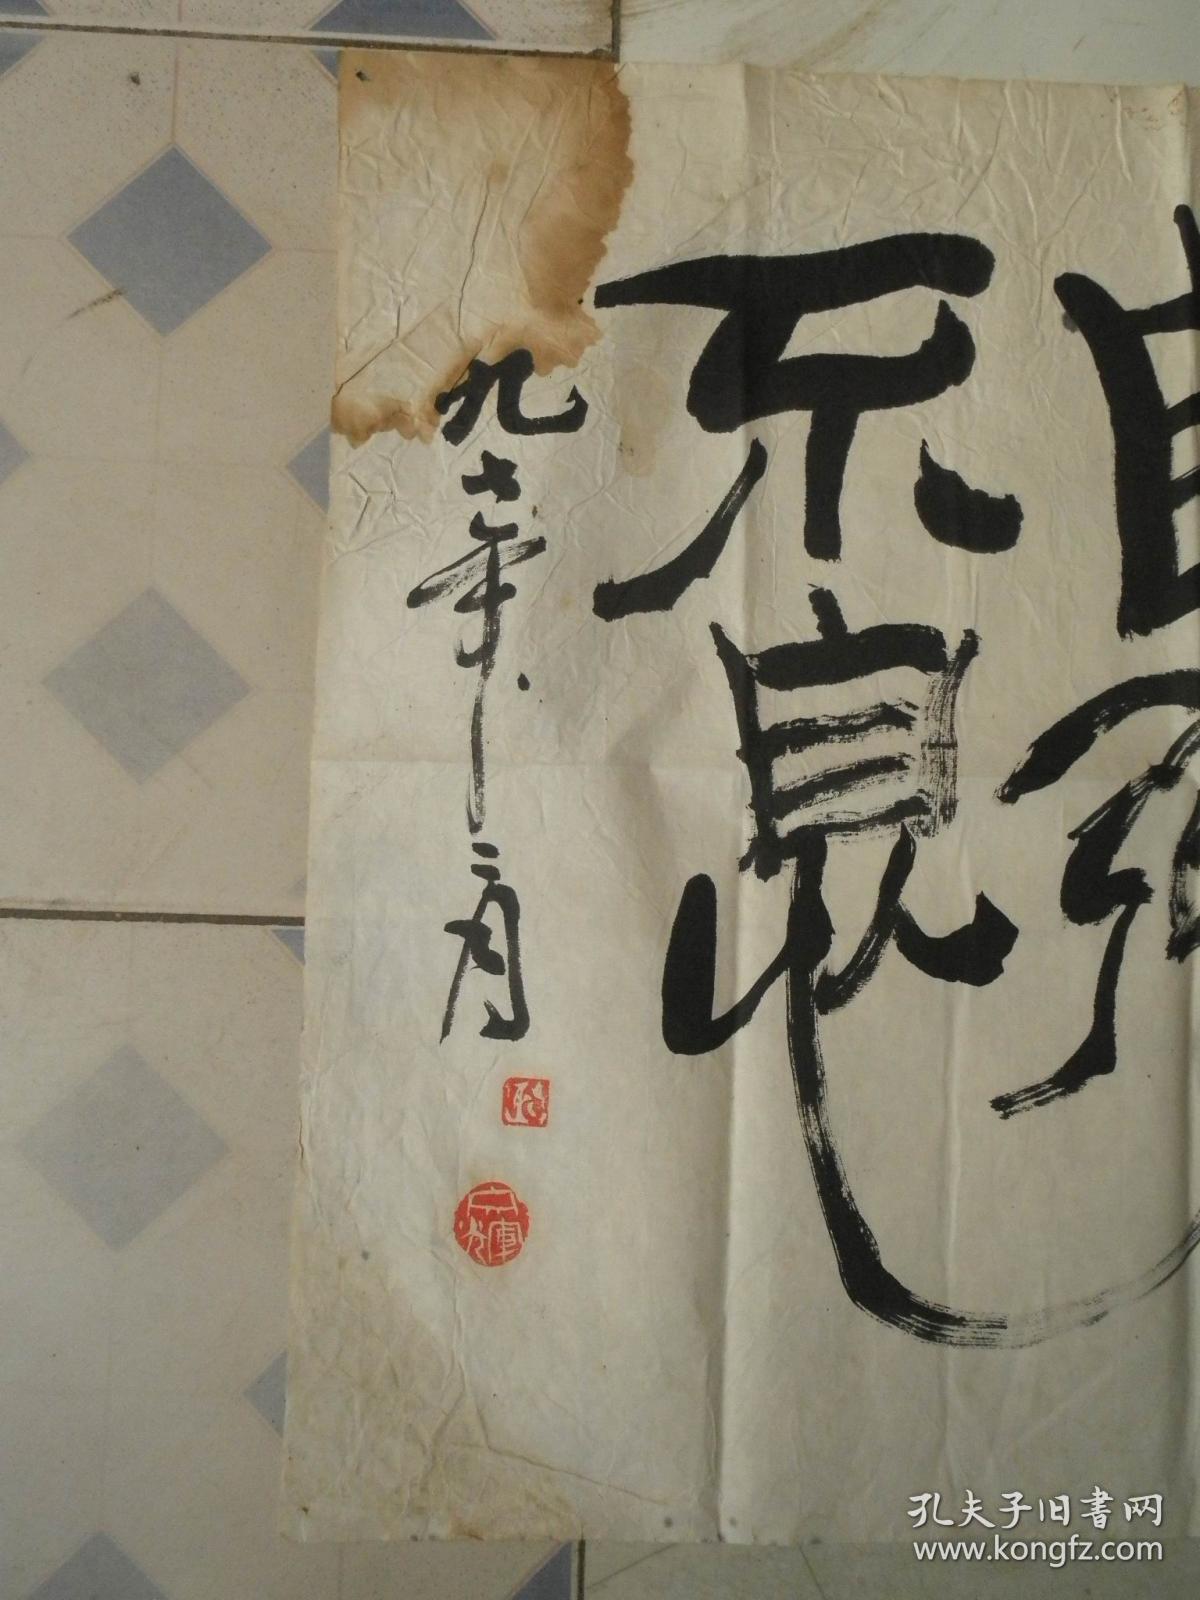 自强
不息
九七年二月
孔夫子旧書网
www.kongfz.com